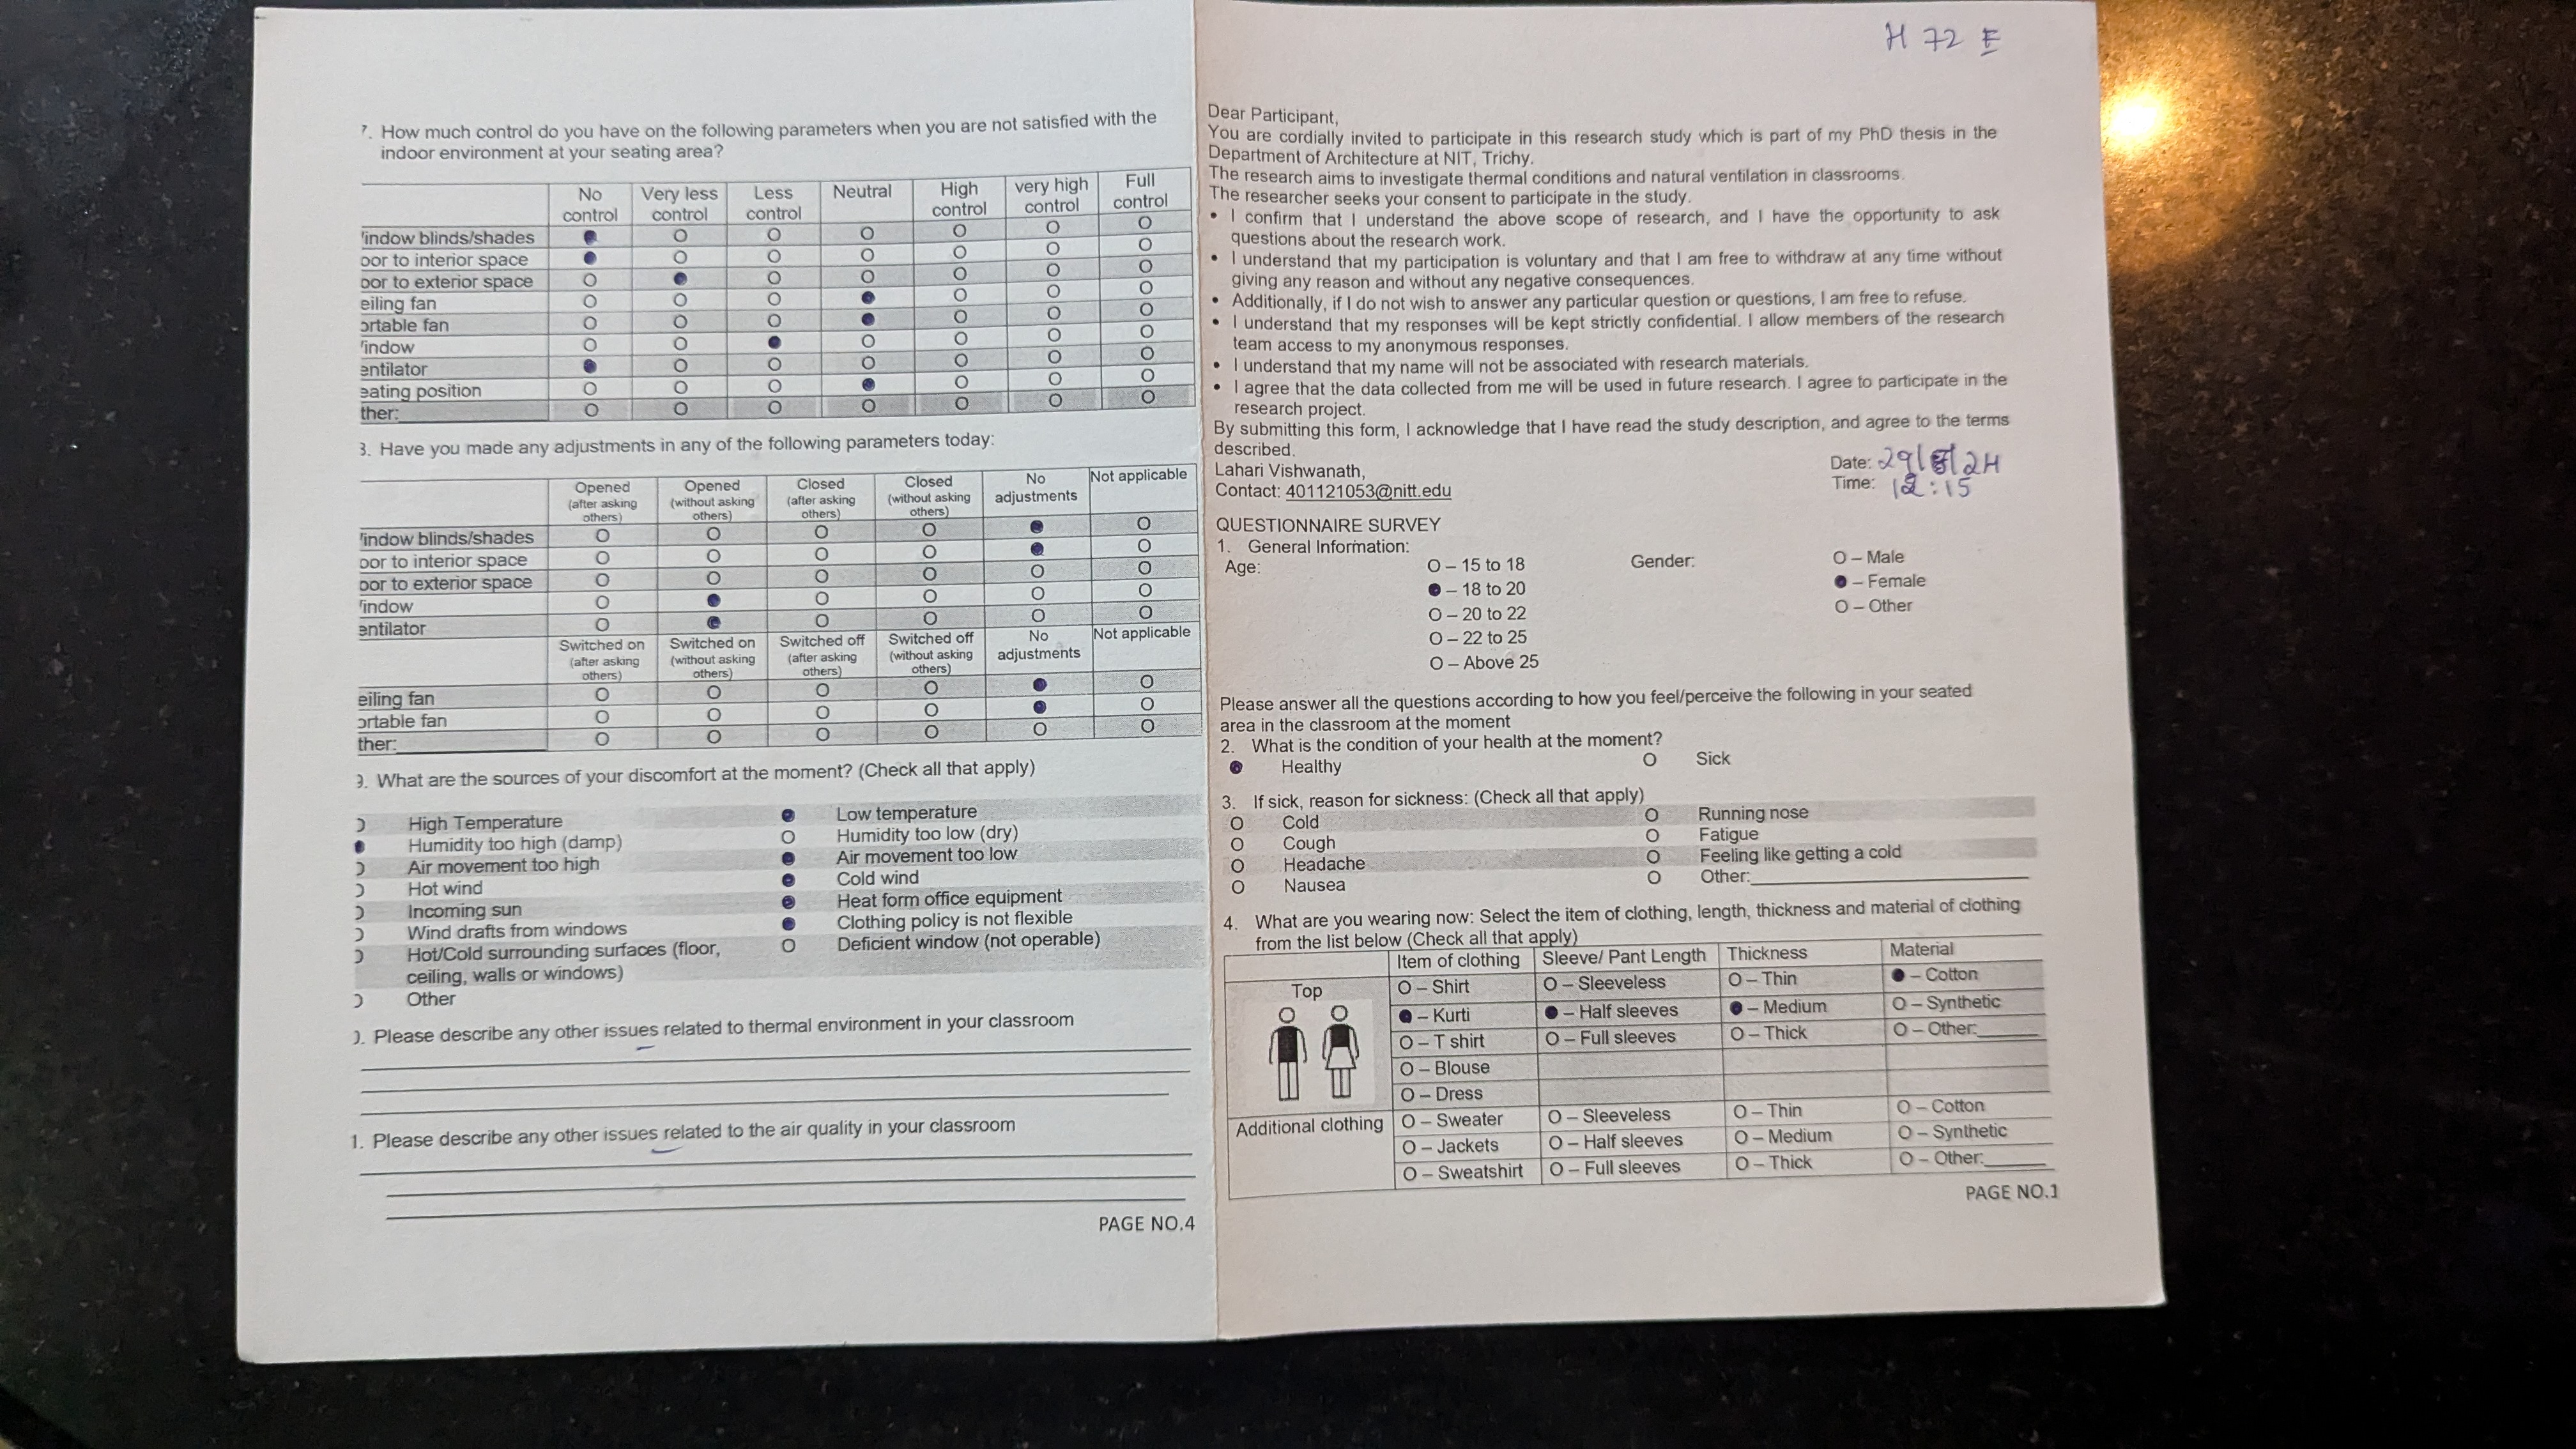 7. How much control do you have on the following parameters when you are not satisfied with the
indoor environment at your seating area?
No control Very less control Less control Neutral High control very high control Full control
indow blinds/shades ● O O O O O O
oor to interior space ● O O O O O O
oor to exterior space O ● O O O O O
eiling fan O O O ● O O O
ortable fan O O O ● O O O
indow O O ● O O O O
entilator ● O O O O O O
eating position O O O ● O O O
ther: O O O O O O O
Have you made any adjustments in any of the following parameters today:
Opened (after asking others) Opened (without asking others) Closed (after asking others) Closed (without asking others) No adjustments Not applicable
indow blinds/shades O O O O ● O
oor to interior space O O O O ● O
oor to exterior space O O O O O O
indow O ● O O O O
entilator O ● O O O O
Switched on (after asking others) Switched on (without asking others) Switched off (after asking others) Switched off (without asking others) No adjustments Not applicable
eiling fan O O O O ● O
ortable fan O O O O ● O
ther: O O O O O O
What are the sources of your discomfort at the moment? (Check all that apply)
High Temperature ● Low temperature
● Humidity too high (damp) O Humidity too low (dry)
Air movement too high ● Air movement too low
Hot wind ● Cold wind
Incoming sun ● Heat form office equipment
Wind drafts from windows ● Clothing policy is not flexible
Hot/Cold surrounding surfaces (floor, O Deficient window (not operable)
ceiling, walls or windows)
Other
Please describe any other issues related to thermal environment in your classroom
1. Please describe any other issues related to the air quality in your classroom
PAGE NO.4
H 72 E
Dear Participant,
You are cordially invited to participate in this research study which is part of my PhD thesis in the
Department of Architecture at NIT, Trichy.
The research aims to investigate thermal conditions and natural ventilation in classrooms.
The researcher seeks your consent to participate in the study.
• I confirm that I understand the above scope of research, and I have the opportunity to ask
questions about the research work.
• I understand that my participation is voluntary and that I am free to withdraw at any time without
giving any reason and without any negative consequences.
• Additionally, if I do not wish to answer any particular question or questions, I am free to refuse.
• I understand that my responses will be kept strictly confidential. I allow members of the research
team access to my anonymous responses.
• I understand that my name will not be associated with research materials.
• I agree that the data collected from me will be used in future research. I agree to participate in the
research project.
By submitting this form, I acknowledge that I have read the study description, and agree to the terms
described.
Lahari Vishwanath, Date:
Contact: 401121053@nitt.edu Time: 12:15
QUESTIONNAIRE SURVEY
1. General Information:
Age: O – 15 to 18 Gender: O – Male
● – 18 to 20 ● – Female
O – 20 to 22 O – Other
O – 22 to 25
O – Above 25
Please answer all the questions according to how you feel/perceive the following in your seated
area in the classroom at the moment
2. What is the condition of your health at the moment?
● Healthy O Sick
3. If sick, reason for sickness: (Check all that apply)
O Cold O Running nose
O Cough O Fatigue
O Headache O Feeling like getting a cold
O Nausea O Other:
4. What are you wearing now: Select the item of clothing, length, thickness and material of clothing
from the list below (Check all that apply)
Item of clothing Sleeve/ Pant Length Thickness Material
Top O – Shirt O – Sleeveless O – Thin ● – Cotton
● – Kurti ● – Half sleeves ● – Medium O – Synthetic
O – T shirt O – Full sleeves O – Thick O – Other:
O – Blouse
O – Dress
Additional clothing O – Sweater O – Sleeveless O – Thin O – Cotton
O – Jackets O – Half sleeves O – Medium O – Synthetic
O – Sweatshirt O – Full sleeves O – Thick O – Other:
PAGE NO.1